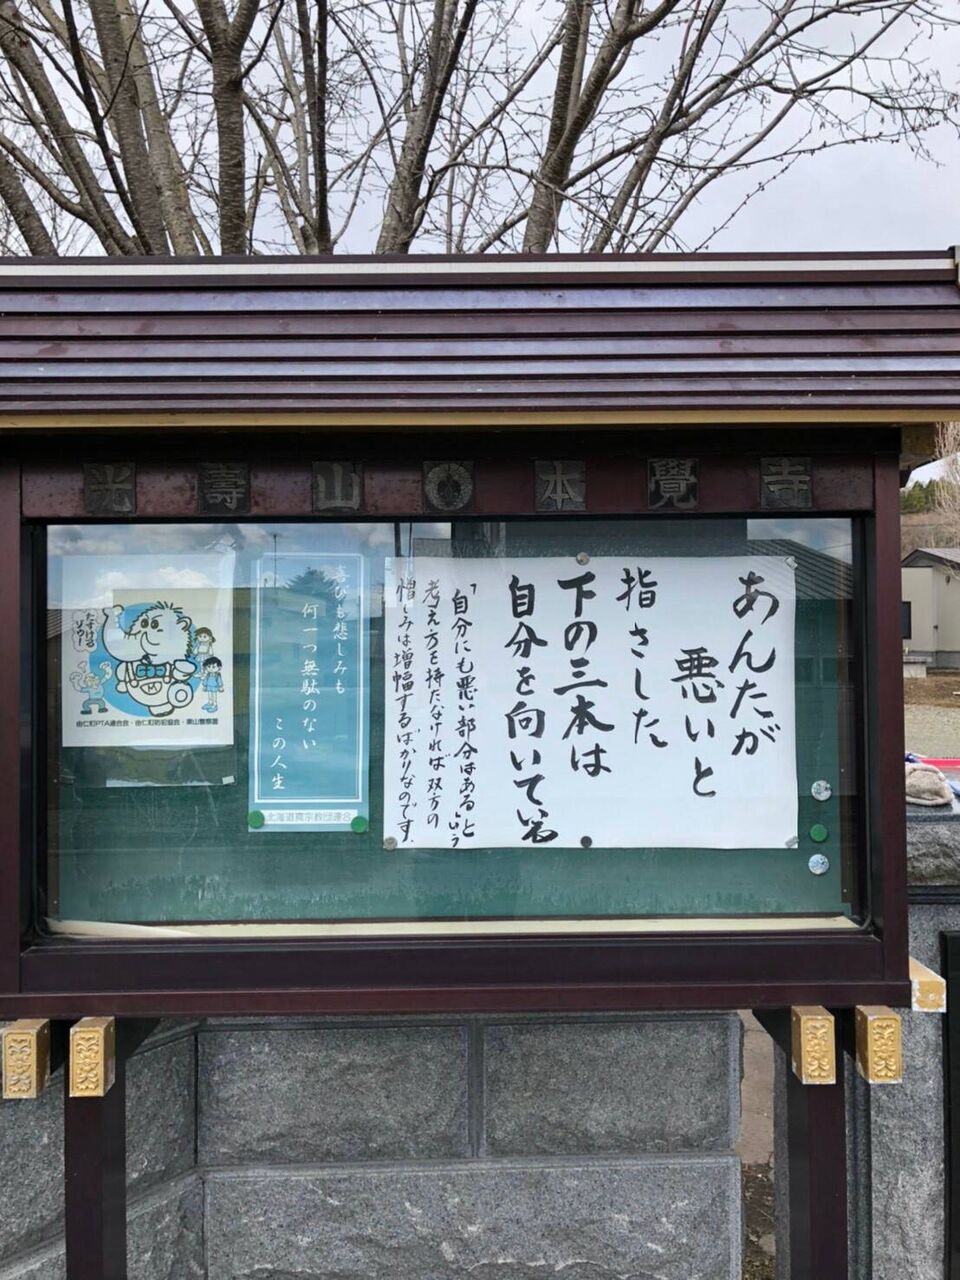 光壽山本覺寺
あんたが
悪いと
指さした
下の三本は
自分を向いている
「自分にも悪い部分はある」という
考え方を持たなければ双方の
憎しみは増幅するばかりなのです。
喜びも悲しみも
何一つ無駄のない
この人生
北海道真宗教団連合
たすける
ゾウ!
由仁町PTA連合会・由仁町防犯協会・栗山警察署